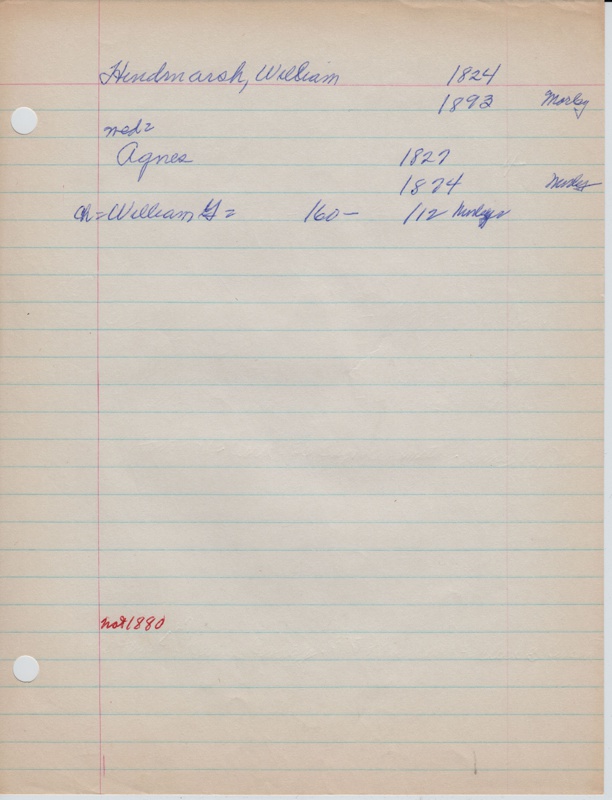 Hindmarsh, William 1824
1893 Morley
md=
Agnes 1827
1874 Morley
ch = William G = 160- 1/12 Morley
not 1880